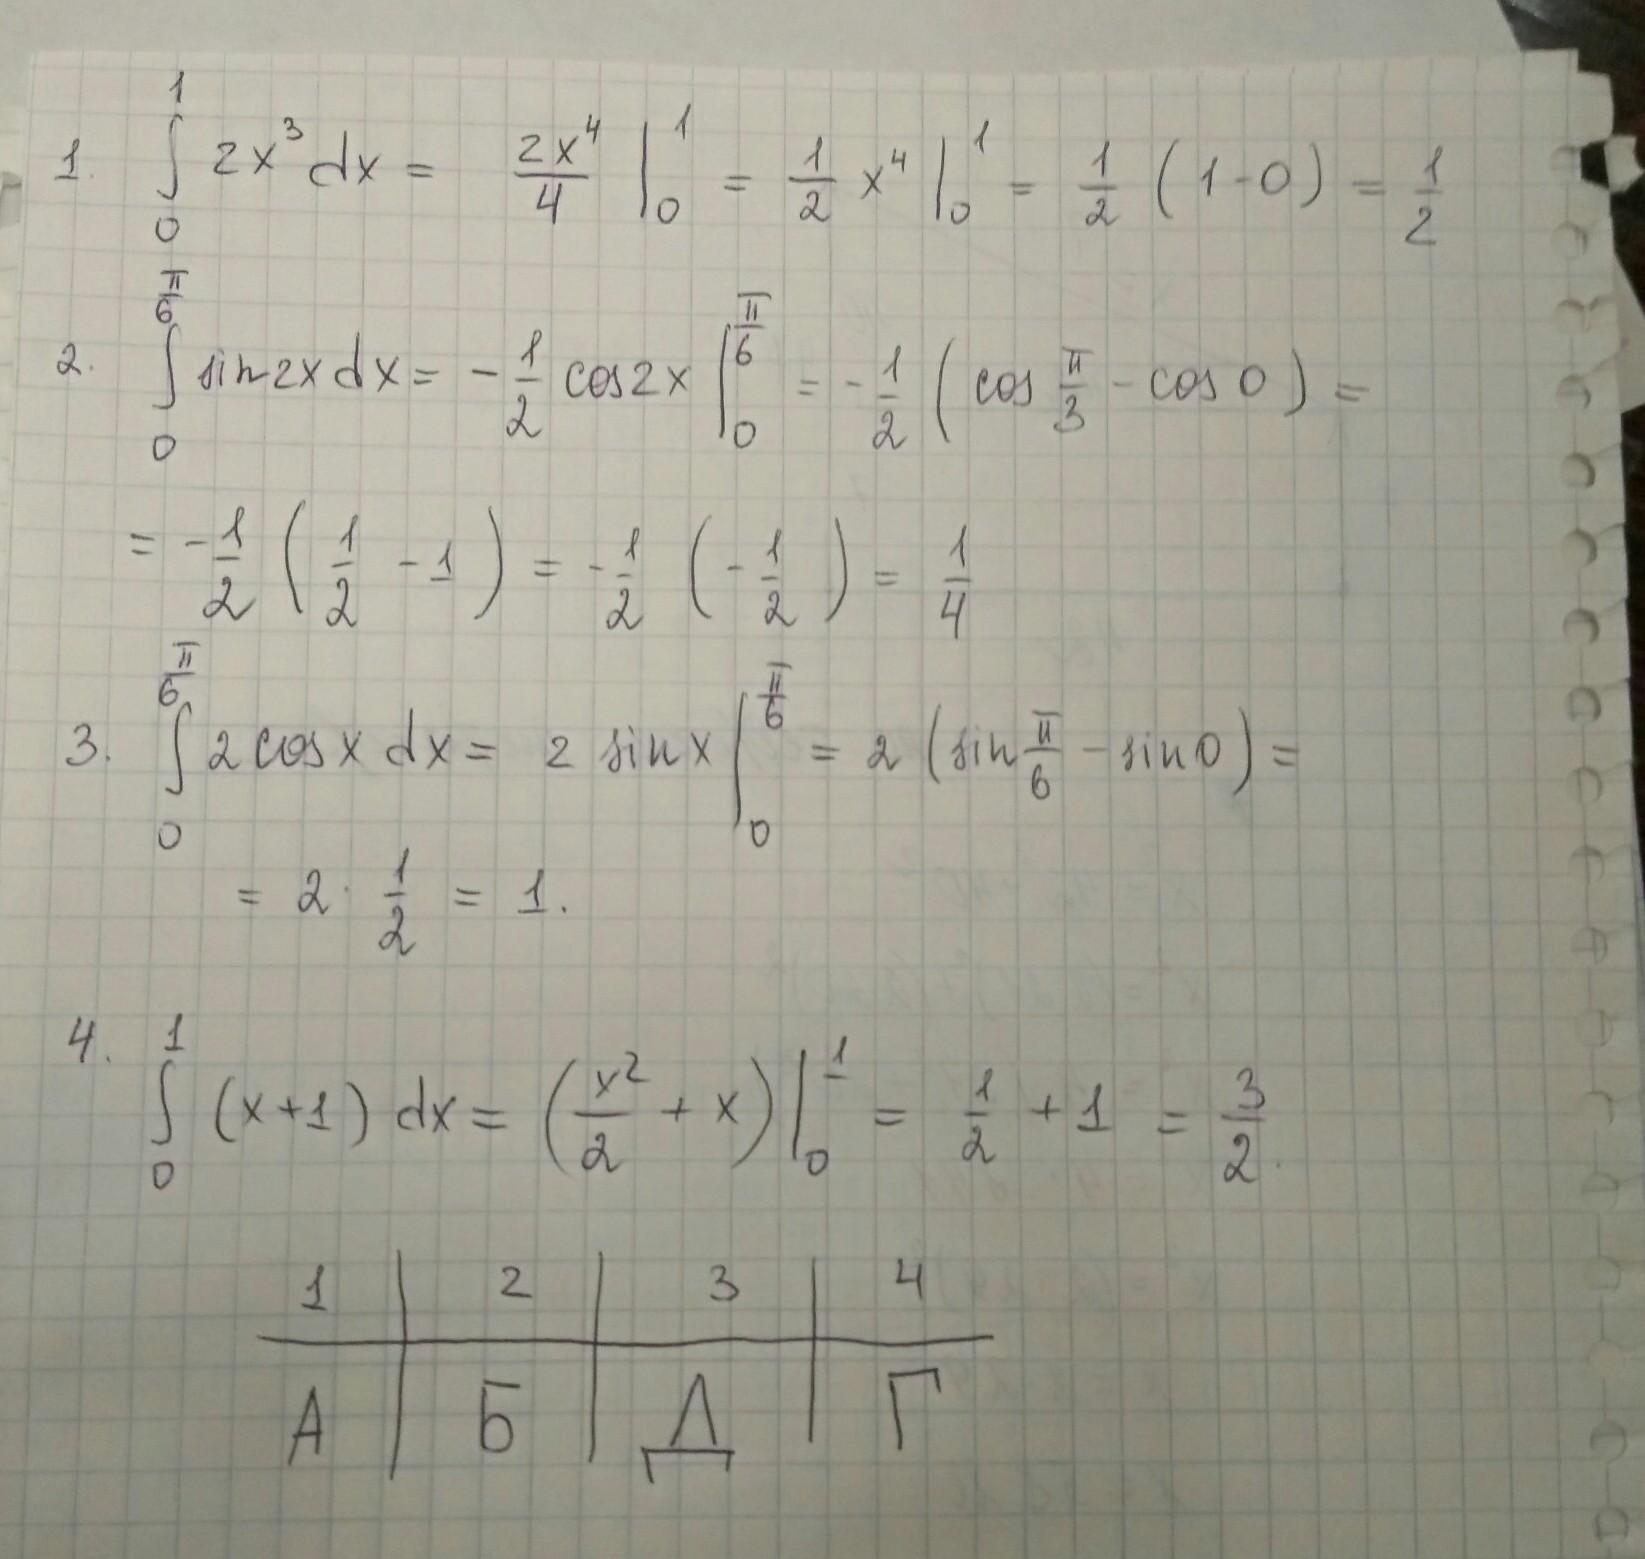 1. ∫₀¹ 2x³ dx = 2x⁴/4 |₀¹ = 1/2 x⁴ |₀¹ = 1/2 (1-0) = 1/2
2. ∫₀^(π/6) sin2x dx = -1/2 cos2x |₀^(π/6) = -1/2 (cos π/3 - cos 0) =
= -1/2 (1/2 - 1) = -1/2 (-1/2) = 1/4
3. ∫₀^(π/6) 2 cosx dx = 2 sinx |₀^(π/6) = 2 (sin π/6 - sin 0) =
= 2 · 1/2 = 1.
4. ∫₀¹ (x+1) dx = (x²/2 + x) |₀¹ = 1/2 + 1 = 3/2.
1 | 2 | 3 | 4
А | Б | Д | Г